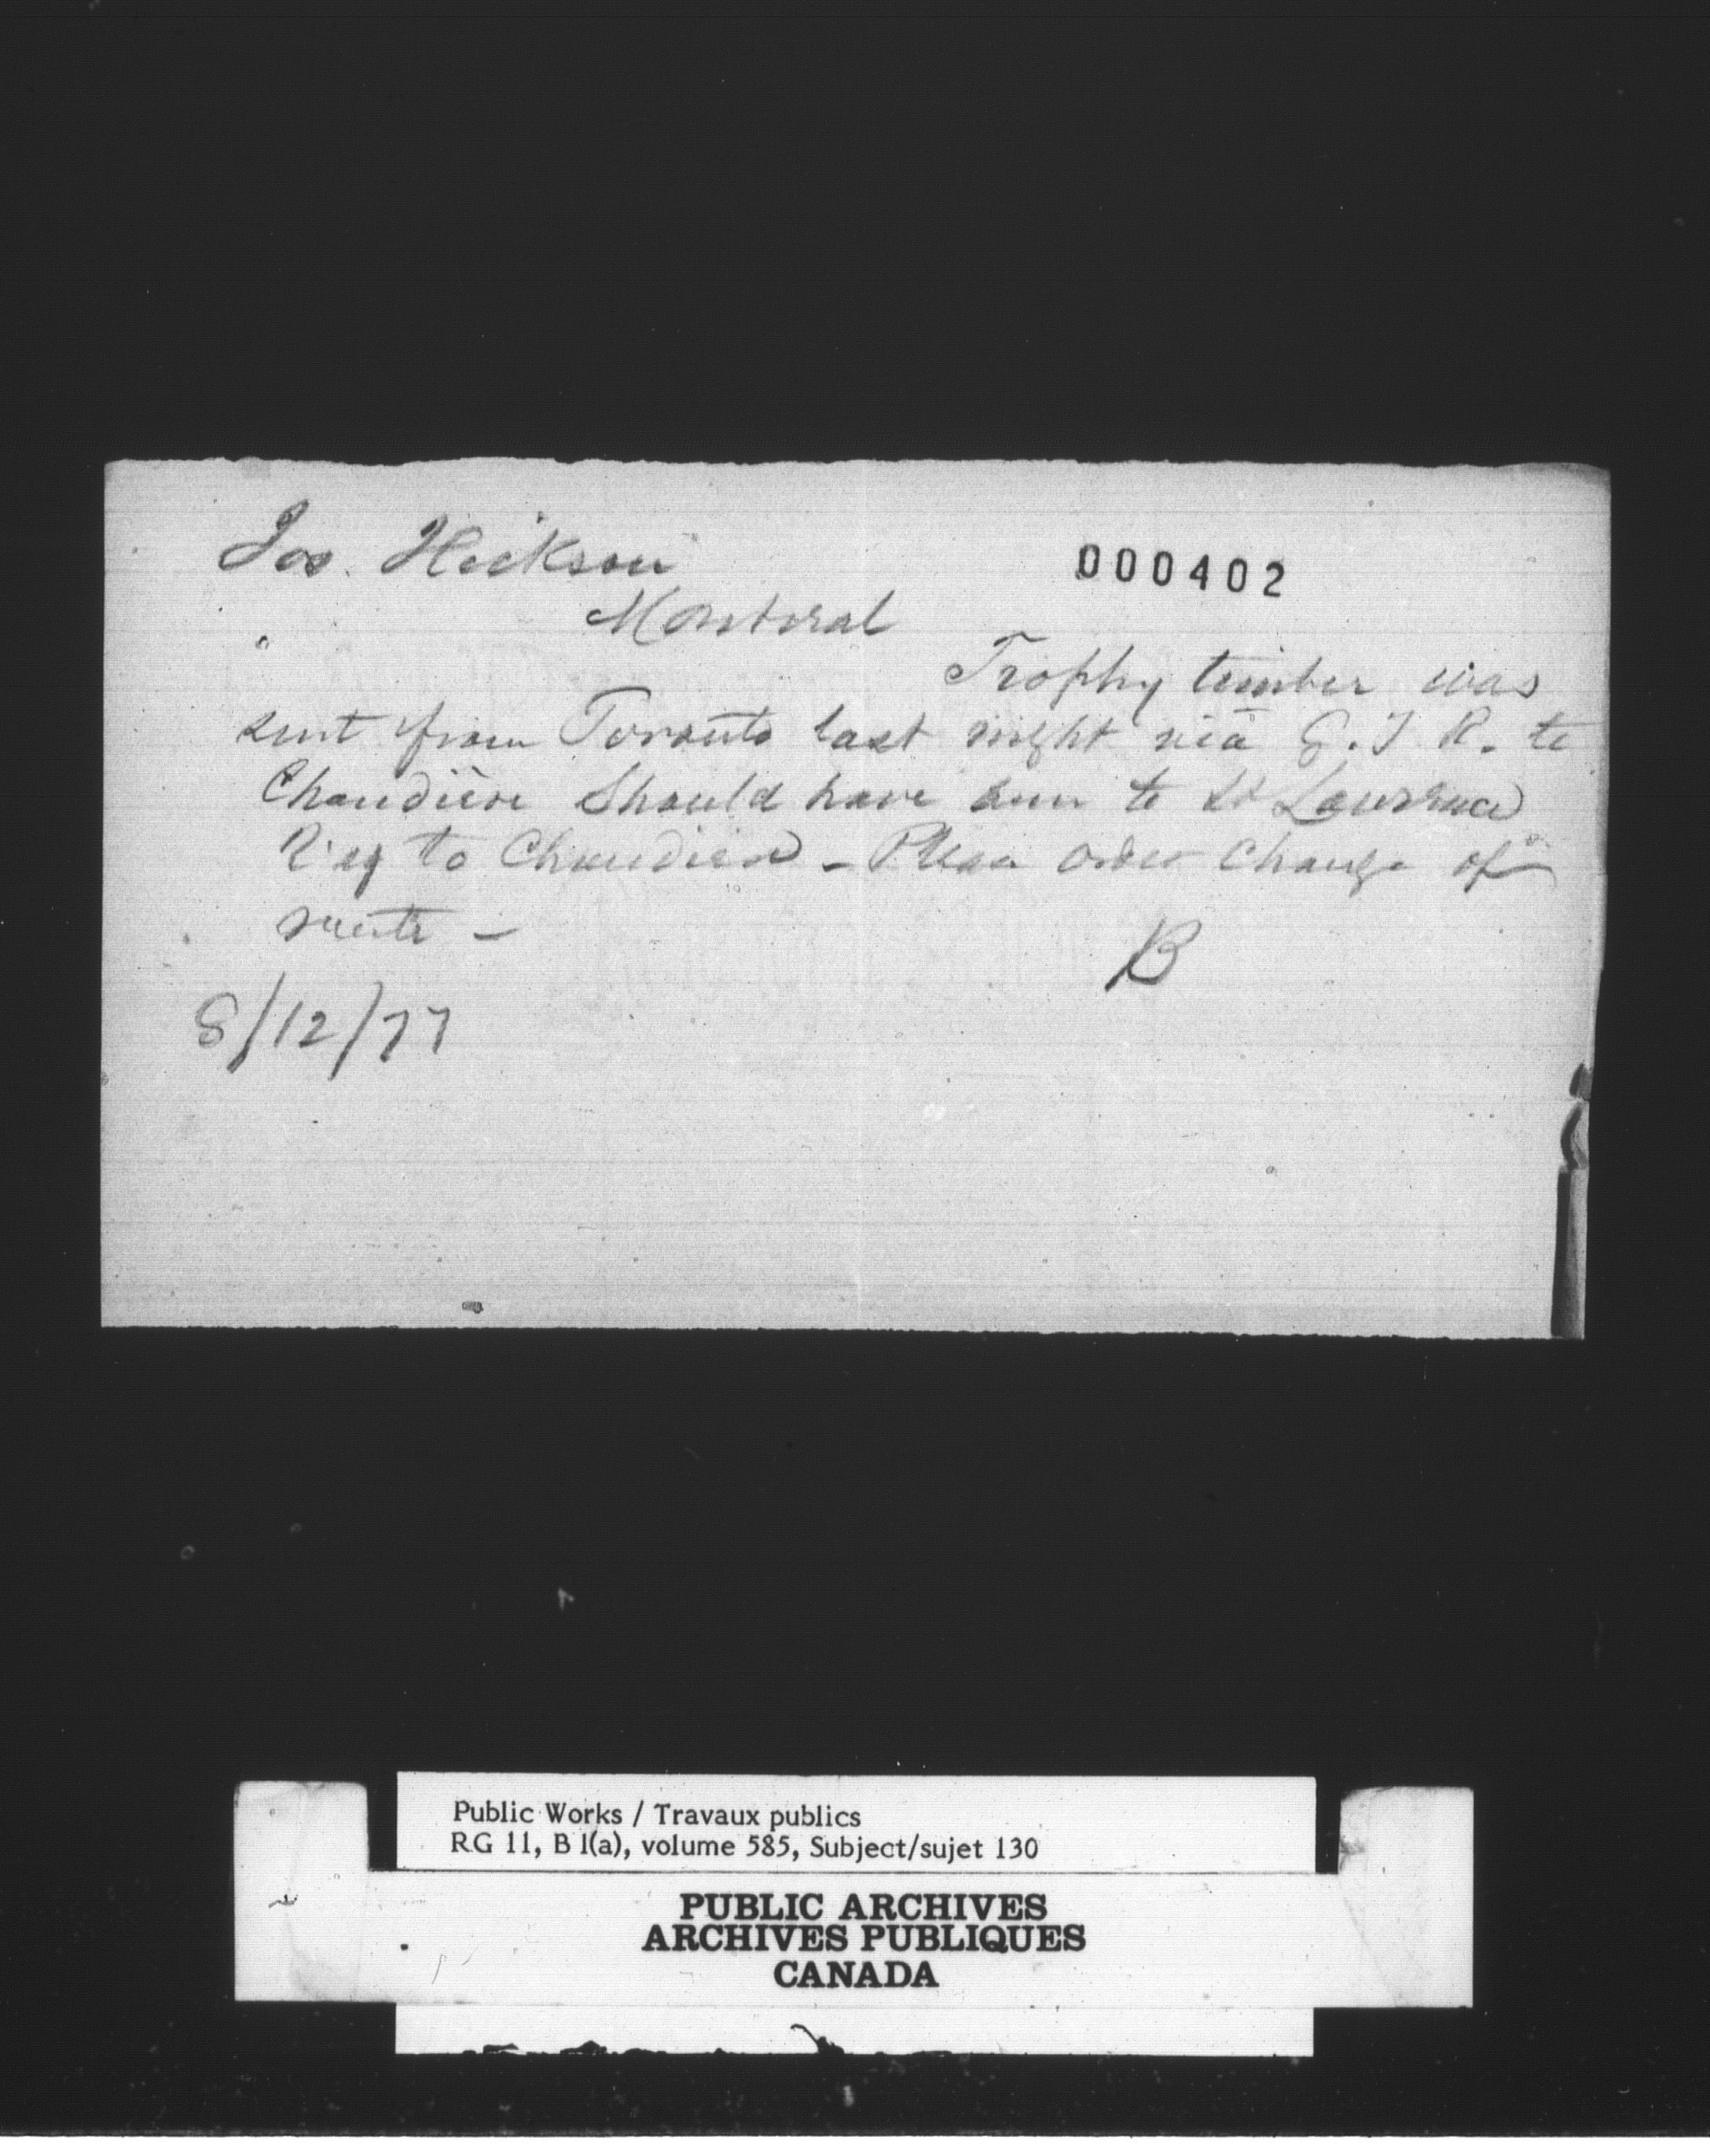 Jos. Hickson
000402
Montreal
Trophy timber was
sent from Toronto last night via G. T. R. to
Chaudière Should have been to St Lawrence
R'ey to Chaudiere - Please order change of
route -
B
8/12/77
Public Works / Travaux publics
RG 11, B 1(a), volume 585, Subject/sujet 130
PUBLIC ARCHIVES
ARCHIVES PUBLIQUES
CANADA